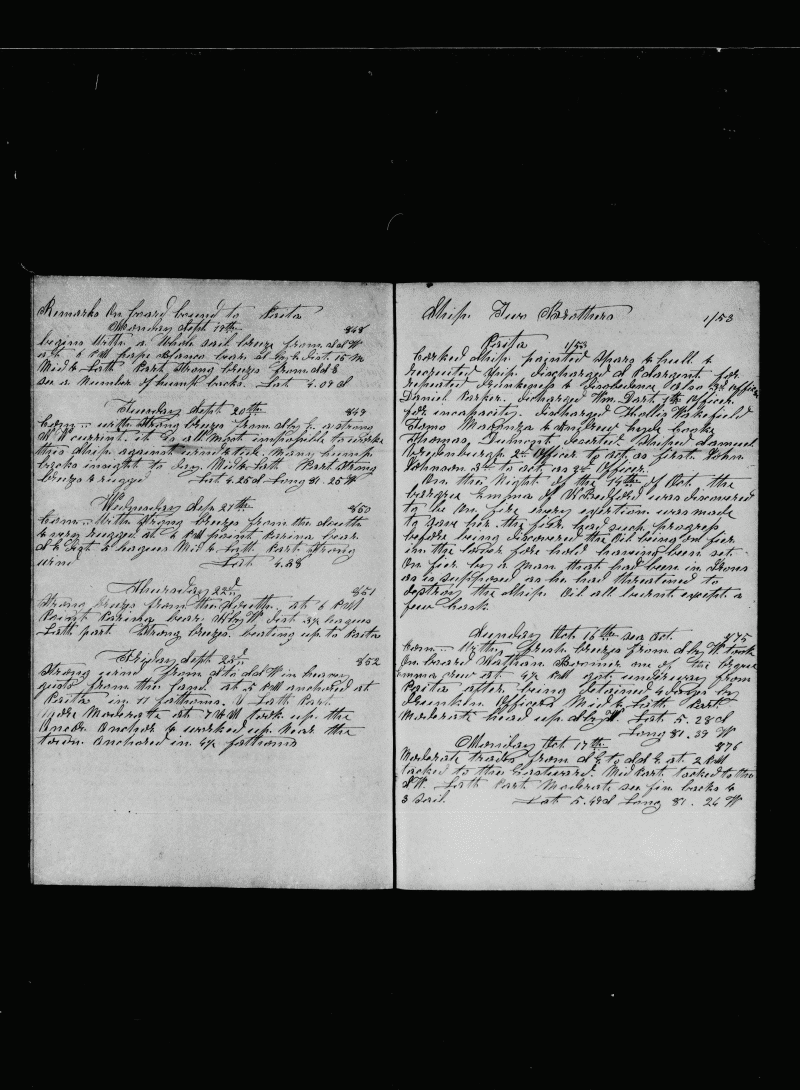 Remarks On board bound to Paita
Monday Sept 19th 848
begins With a Whole sail breeze from SSW
at 6 PM Cape Blanco bear S by E dist. 15 m
Mid & Lath Part strong breezes from SSE
see a Number of hump backs. Lat 4.09 S
Tuesday Sept. 20th 849
Com... with strong breezes from S by E. a strong
NW current. it is all most imposible to work
this Ship against wind & tide. Many hump
backs insight to day. Mid & Lath Part Strong
breeze & rugged Lat 4.25 S Long 81.25 W
Wednesday Sep 21th 850
Com... With strong breezes from the South
& very rugged at 6 PM point Parina bear
S & E dist 5 leagues Mid & Lath Part Strong
wind Lat 4.28
Thursday 22d 851
Strong breezes from the South, at 6 PM
Point Parina bear. S by W dist 3½ leagues
Lath part Strong breezes. beating up to Paita
Friday Sept 23d 852
Strong wind from S to SSW in heavy
gusts from the land. at 5 PM anchored at
Paita in 11 fathoms. Lath Part
more Moderate at 7 AM took up the
Anchor & worked up Near the
town. Anchored in 4½ fathoms
Ship Two Brothers 1/53
Paita 1/53
Corked Ship. painted Spars & hull &
recruited Ship. discharged S Sargent for
repeated Drunkness & Disobedience also 3d Officer
Daniel Parker. discharged Wm. Dart 1th Officer.
for incapacity. discharged Wakefield
& Andrew cooks
Thomas Dumont deserted Shiped Samuel
Vredenburgh 2d Officer to act as first. John
Johnson 3d to act as 2d Officer.
On the Night of the 14th of Oct. the
barque Emma of N Bedford was discovered
to be On fire every exertion was made
to save her. the fire had such progress
before being discovered the Oil being on fier
in the lower fore hold having been set
On fier by a man that had been in Irons
as is supposed as he had threatened to
destroy the Ship. Oil all burnt except a
few Cask
Sunday Oct. 16th sea Oct. 875
Com... With fresh breezes from S by W took
On board Nathan Boomer one of the barque
Emma crew at 4½ PM got underway from
Paita after being detained 4 days by
Drunken Officers Mid & Lath Part
Moderate head up S by W. Lat 5.28 S
Long 81.39 W
Monday Oct 17th 876
Moderate trades from SE to SSE at 2 PM
tacked to the Eastward. Mid Part. tacked to the
SW. Lath Part Moderate see fin backs &
3 sail. Lat 5.48 S Long 81.26 W